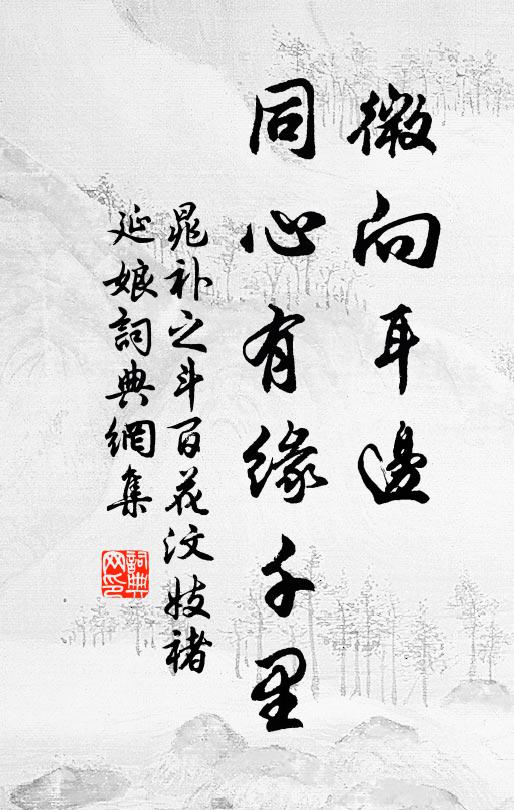 微向耳邊
同心有緣千里
晁补之斗百花汶妓褚
延娘詞典網集
詞典網印